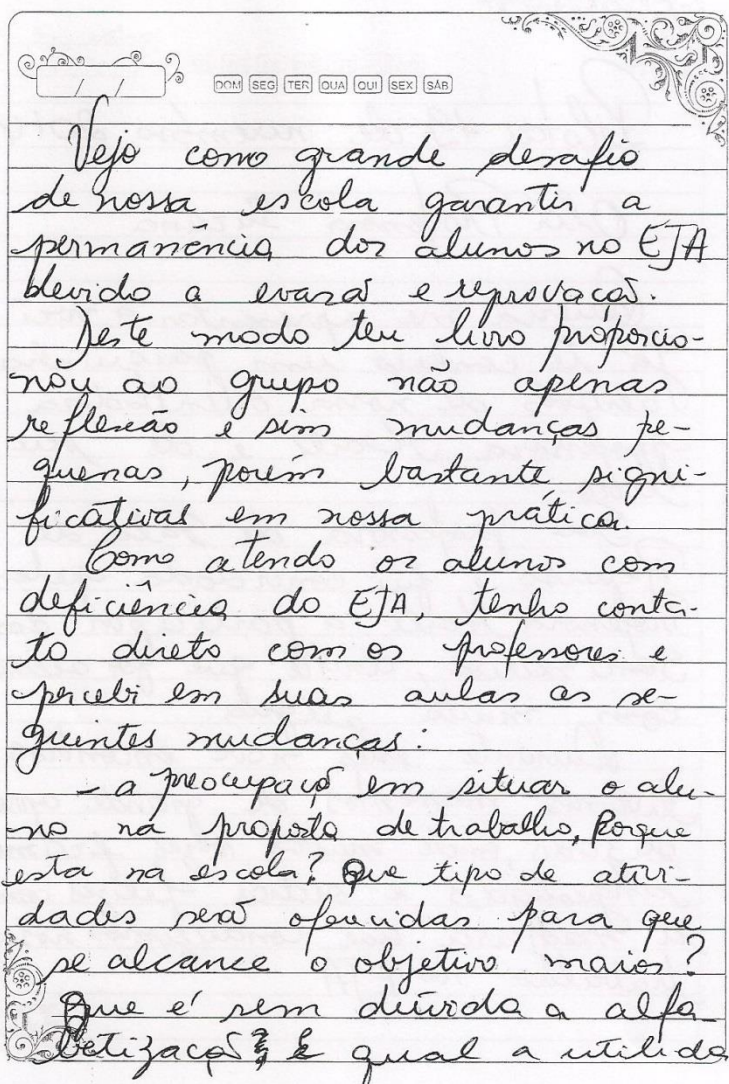 DOM SEG TER QUA QUI SEX SÁB
Vejo como grande desafio
de nossa escola garantir a
permanência dos alunos no EJA
devido a evasã e reprovaçõ.
Deste modo teu livro proporcio-
nou ao grupo não apenas
reflexão e sim mudanças pe-
quenas, porém bastante signi-
ficativas em nossa prática.
Como atendo os alunos com
deficiência do EJA tenho conta-
to direto com os professores e
percebi em suas aulas as se-
guintes mudanças:
- a preocupaçõ em situar o alu-
no na proposta de trabalho, Porque
esta na escola? Que tipo de ativi-
dades será oferecidas para que
se alcance o objetivo maior?
Que é sem dúvida a alfa-
betizaçõ, e qual a utilida